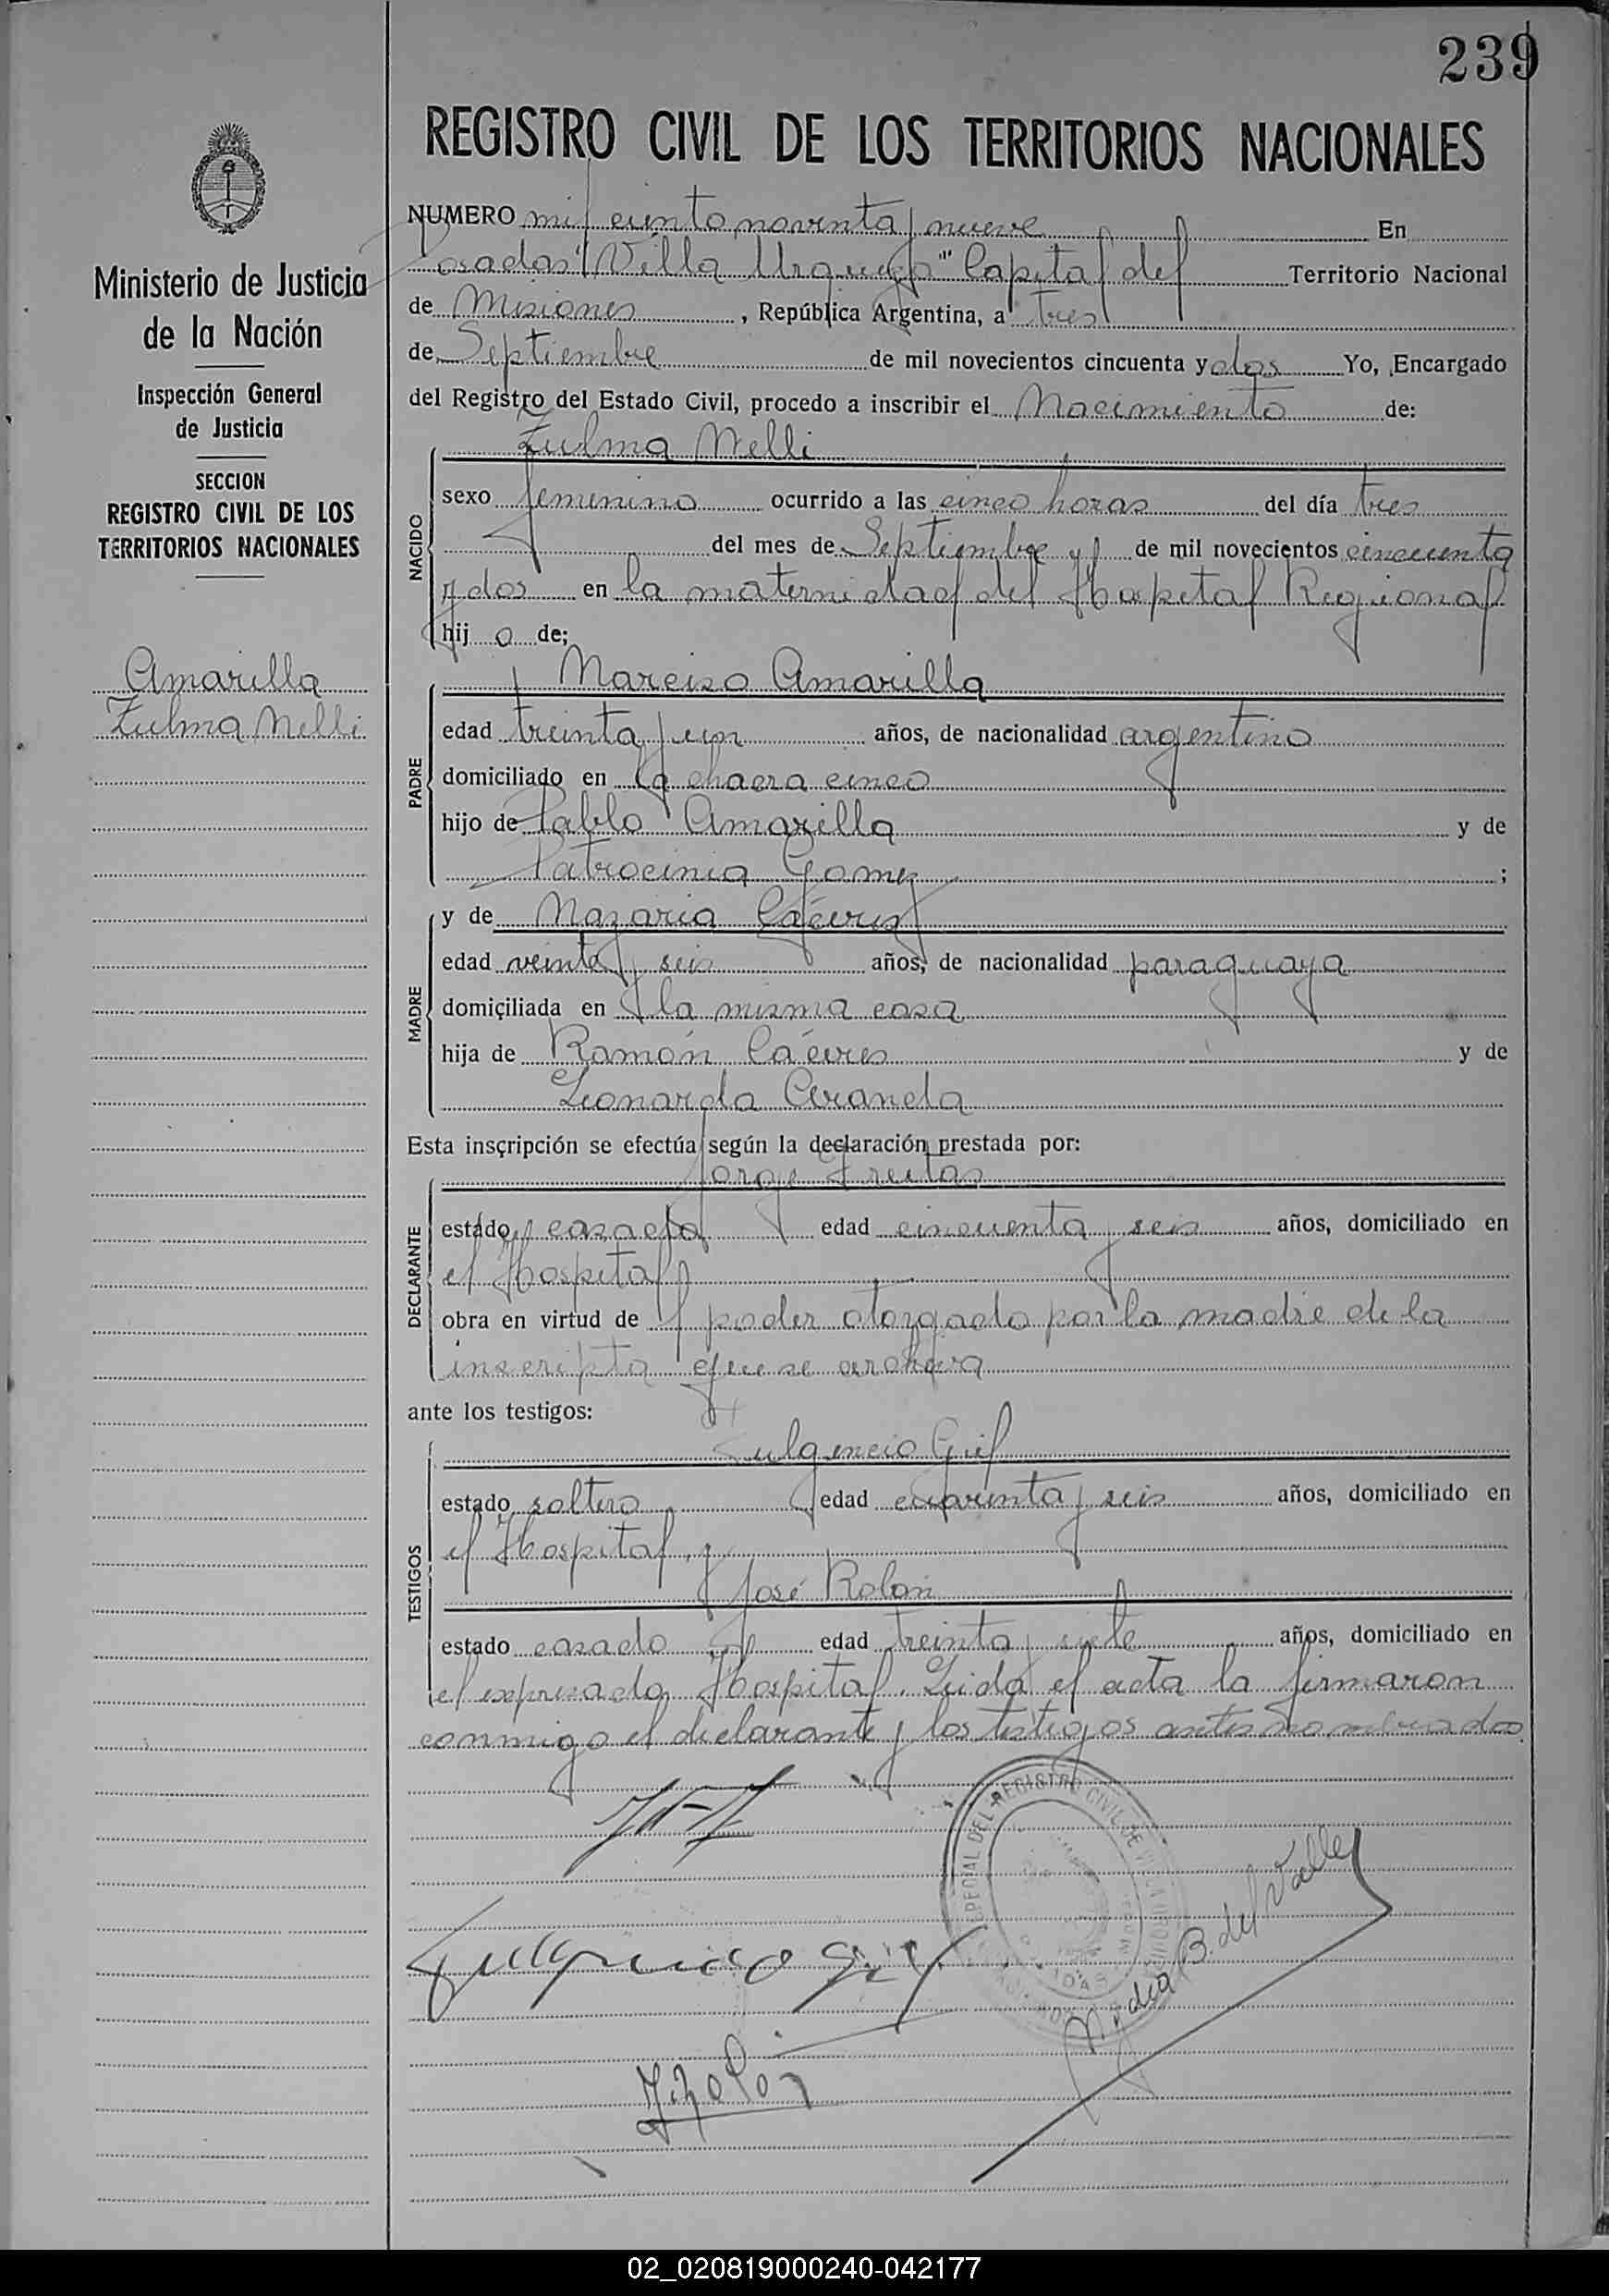 239
REGISTRO CIVIL DE LOS TERRITORIOS NACIONALES
Ministerio de Justicia
de la Nación
Inspección General
de Justicia
SECCION
REGISTRO CIVIL DE LOS
TERRITORIOS NACIONALES
Amarilla
Zulma Nelli
NUMERO mil ciento noventa y nueve En
Posadas "Villa Urquiza" Capital del Territorio Nacional
de Misiones, República Argentina, a tres
de Septiembre de mil novecientos cincuenta y dos Yo, Encargado
del Registro del Estado Civil, procedo a inscribir el Nacimiento de:
Zulma Nelli
NACIDO
sexo femenino ocurrido a las cinco horas del día tres
del mes de Septiembre de mil novecientos cincuenta
y dos en la maternidad del Hospital Regional
hij a de;
Narciso Amarilla
PADRE
edad treinta y un años, de nacionalidad argentino
domiciliado en la chacra cinco
hijo de Pablo Amarilla y de
Patrocinia Gomez ;
MADRE
y de Nazaria Cáceres
edad veinte y seis años, de nacionalidad paraguaya
domiciliada en la misma casa
hija de Ramón Cáceres y de
Leonarda Aranda
Esta inscripción se efectúa según la declaración prestada por:
Jorge Freitas
DECLARANTE
estado casado edad cincuenta y seis años, domiciliado en
el Hospital
obra en virtud de poder otorgado por la madre de la
inscripta que se archiva
ante los testigos:
Fulgencio Gil
TESTIGOS
estado soltero edad cuarenta y seis años, domiciliado en
el Hospital, y
José Rolon
estado casado edad treinta y siete años, domiciliado en
el expresado Hospital. Leida el acta la firmaron
conmigo el declarante y los testigos antes nombrados.
DEL REGISTRO CIVIL DE VILLA URQUIZA
Fulgencio Gil
J. Rolón
B. del Valle
02_020819000240-042177